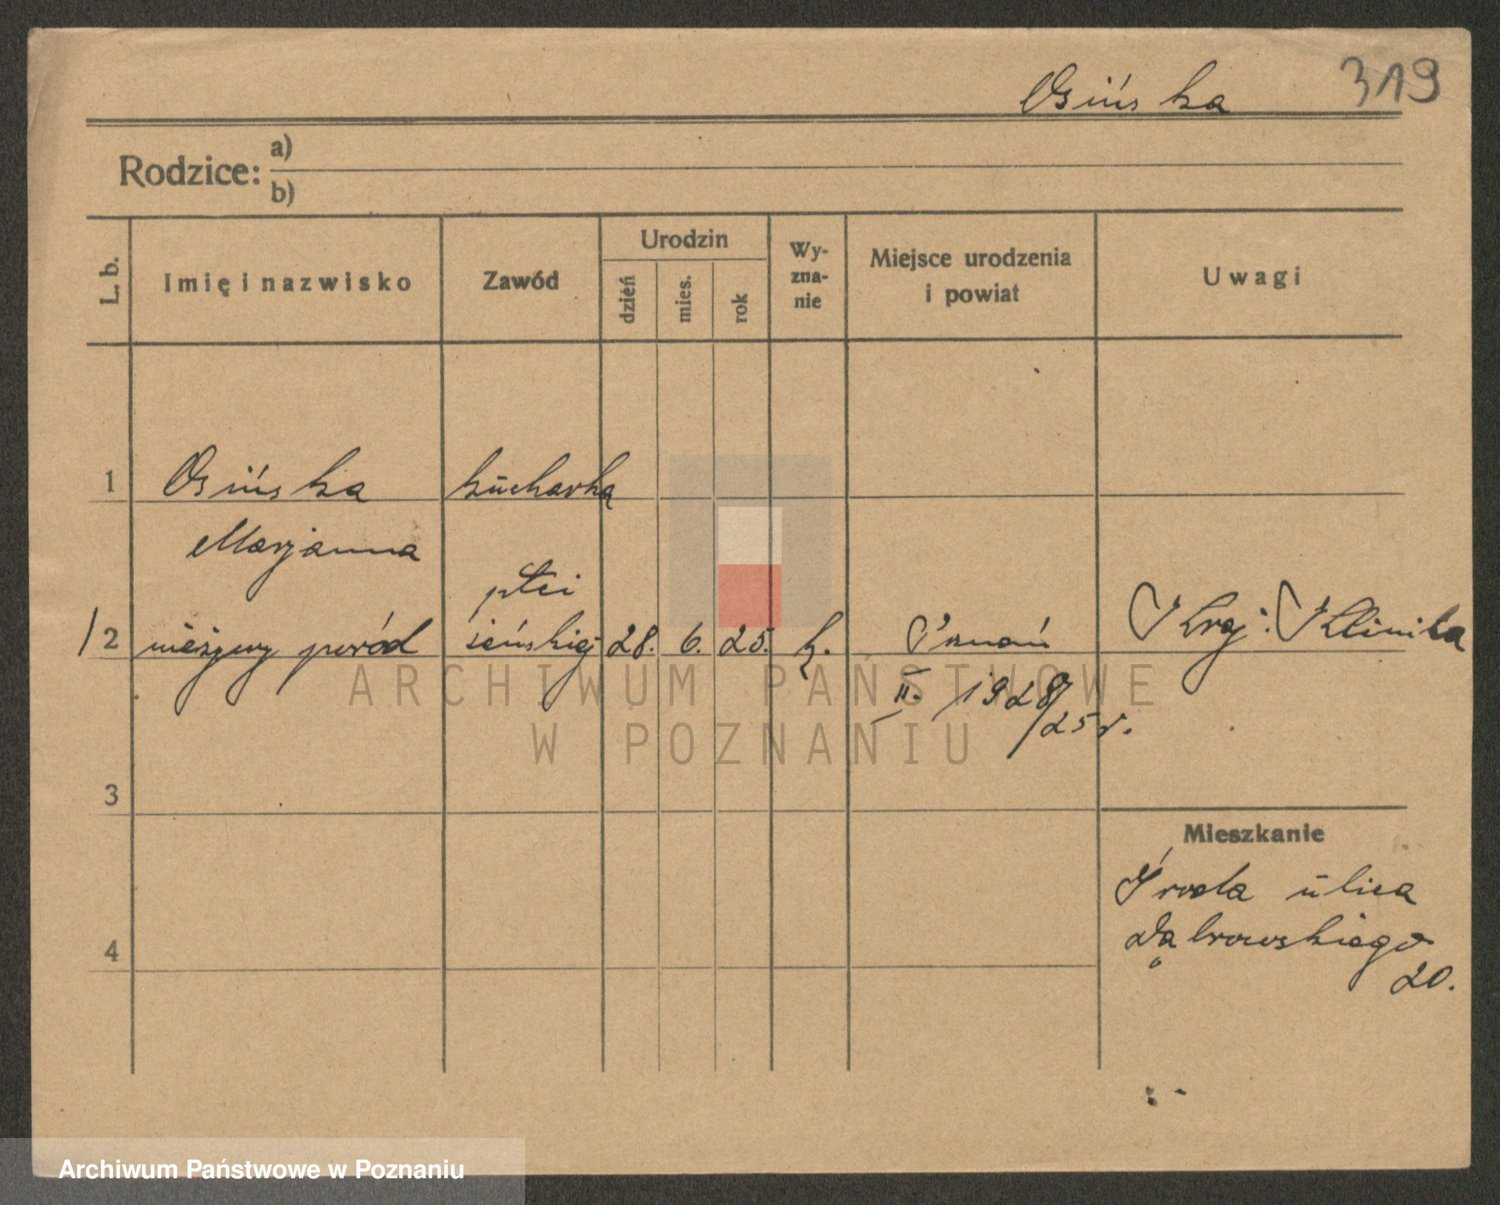 Osińska 319
Rodzice: a)
b)
L. b. Imię i nazwisko Zawód Urodzin dzień mies. rok Wy-zna-nie Miejsce urodzenia i powiat Uwagi
1 Osińska kucharka
Marjanna
płci
2 nieżywy poród żeńskiej 28. 6. 25. k. Poznań Kraj. Klinika
II. 1928/25 r.
ARCHIWUM PAŃSTWOWE
W POZNANIU
3
Mieszkanie
Środa ulica
Dąbrowskiego
20.
4
Archiwum Państwowe w Poznaniu